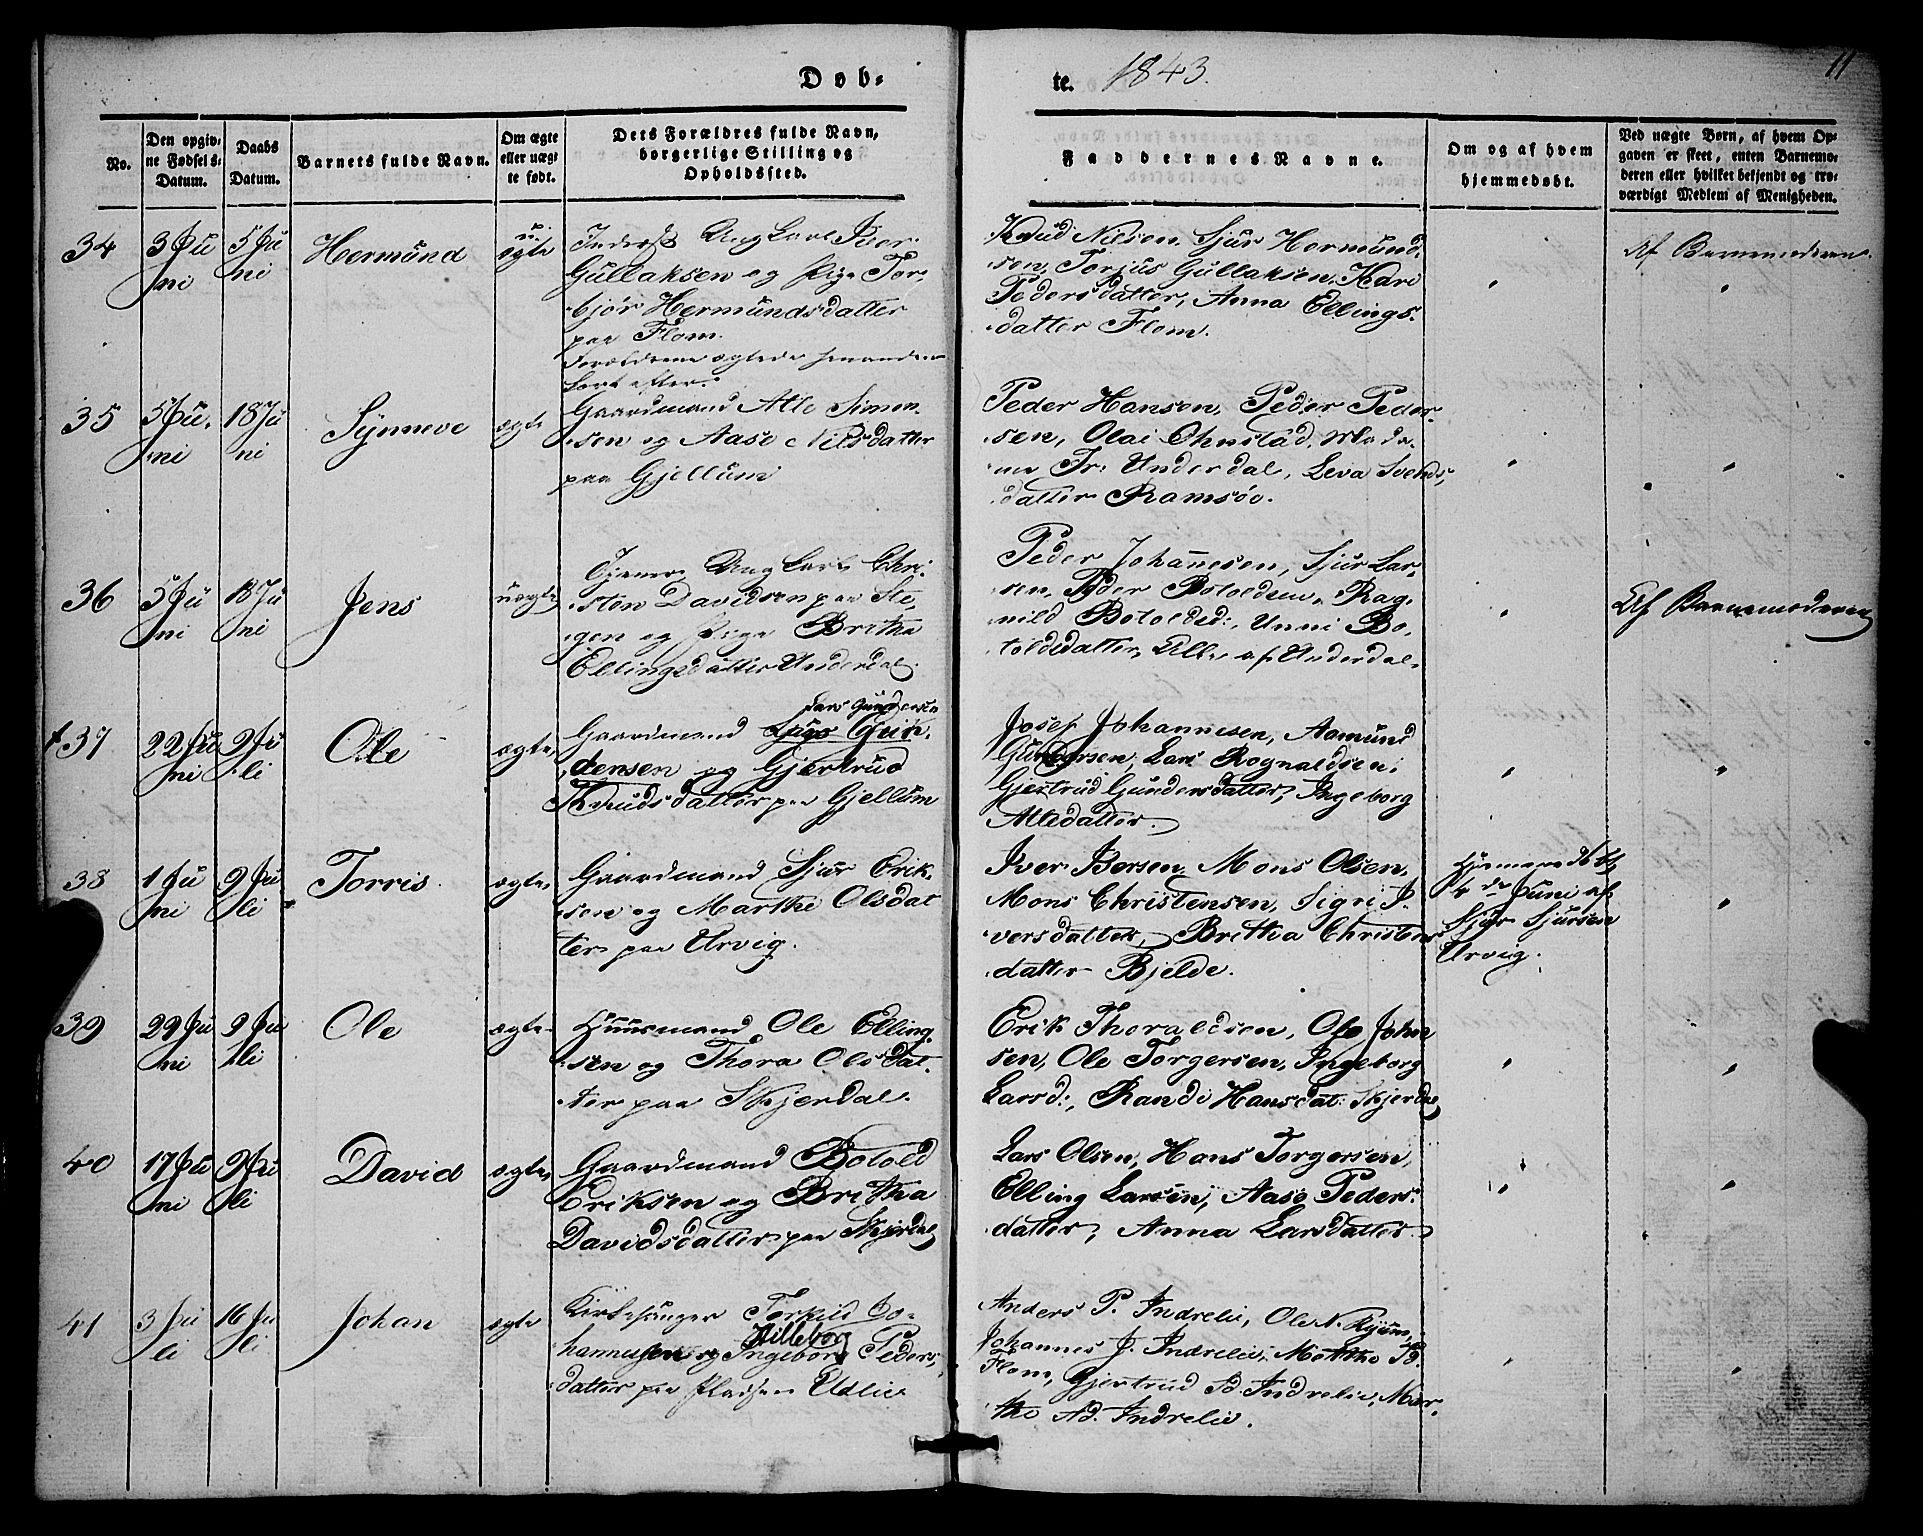 Døb-
te. 1843.
11
No.
Den opgiv-
ne Fødsels-
Datum.
Daabs
Datum.
Barnets fulde Navn.
Om ægte
eller uægt
te født.
Dets Forældres fulde Navn,
borgerlige Stilling og
Opholdssted.
Faddernes Navne.
Om og af hvem
hjemmedøbt.
Ved uægte Børn, af hvem Op-
gaven er skeet, enten Barnemo-
deren eller hvilket bekjendt og tro-
værdigt Medlem af Menigheden.
34
3 Ju
ni
5 Ju
ni
Hermund
u.
egte
Ung Karl Peer
Gullaksen og Pige Tor-
bjør Hermundsdatter
paa Flom.
Forældrene ægtede hinanden
kort efter.
Knud Nilsen, Sjur Hermund-
sen, Torjus Gullaksen, Kari
Pedersdatter, Anna Ellings-
datter Flom.
"
Af Barnemoderen.
"
35
5 Ju-
ni
18 Ju
ni
Synneve
ægte
Gaardmand Atle Simon-
sen og Aase Nilsdatter
paa Gjellum
Peder Hansen, Peder Peder-
sen, Olai Ohnstad, Mada-
me Fr. Underdal, Leva Svends-
datter Ramsøe.
"
"
36
5 Ju
ni
18 Ju
ni
Jens
uægte
Ung Karl Chri-
sten Davidsen paa Ste-
gen og Pige Britha
Ellingsdatter Underdal.
Peder Johannesen, Sjur Lar-
sen, Peder Botoldsen, Rag-
nild Botoldsd:, Unni Bo-
toldsdatter, Alle af Underdal.
"
Af Barnemoderen
+37
22 Ju
ni
2 Ju
li
Ole
ægte
Lars Gundersen
Gaardmand
densen og Gjertrud
Knudsdatter paa Gjellum
Josef Johannesen, Aamund
Gundersen, Lars Rognaldsen,
Gjertrud Gundersdatter, Ingeborg
Atlesdatter.
"
"
38
1 Ju
ni
2 Ju
li
Torris.
ægte
Gaardmand Sjur Erik-
sen og Marthe Olsdat
ter paa Urvig.
Iver Børsen, Mons Olsen,
Mons Christensen, Sigri I-
versdatter, Britha Christens
datter Bjelde.
Hjemmedøbt
4de Juni af
Sjur Sjursen
Urvig.
"
39
22 Ju
ni
2 Ju
li
Ole
ægte
Huusmand Ole Elling-
sen og Thora Olsdat-
ter paa Skjerdal.
Erik Thoraldsen, Ole John
sen, Ole Torgersen, Ingeborg
Larsd:, Randi Hansdat: Skjerdal
"
"
40
17 Ju
ni
2 Ju
li
David
ægte
Gaardmand Botold
Eriksen og Britha
Davidsdatter paa Skjerdal
Lars Olsen, Hans Torgersen,
Elling Larsen, Aase Peders-
datter, Anna Larsdatter.
"
"
41
3 Ju
li
16 Ju
li
Johan
ægte
Kirkesanger Torkild Jo-
Hilleborg
hannesen og Ingeborg Peders-
datter paa Pladsen Udlie
Anders P. Indrelie, Ole N. Ryum,
Johannes J. Indrelie, Marthe
Flom, Gjertrud Indrelie, Mar-
the Ad. Indrelie.
"
"